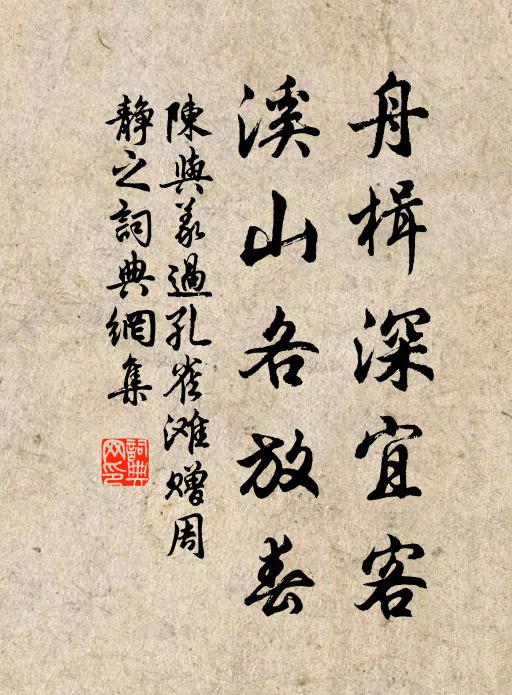 舟楫深宜客
溪山各放春
陳與義過孔雀滩贈周
靜之詞典網集
詞典
网印